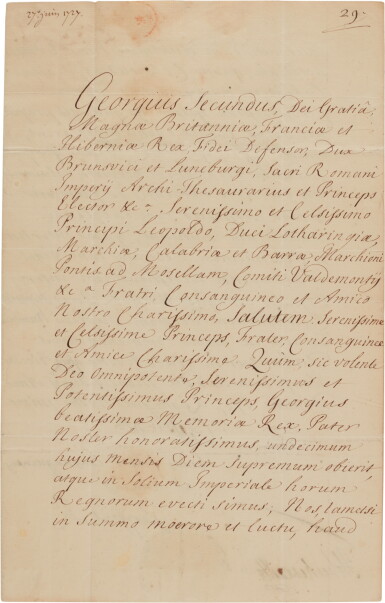 27 Juin 1727.
29.
Georgius Secundus, Dei Gratiâ,
Magnæ Britanniæ, Franciæ et
Hiberniæ Rex Fidei Defensor, Dux
Brunsvici et Luneburgi, Sacri Romani
Imperij Archi-Thesaurarius et Princeps
Elector &c.ª Serenissimo et Celsissimo
Principi Leopoldo, Duci Lotharingiæ,
Marchiæ, Calabriæ et Barræ, Marchioni
Pontis ad Mosellam, Comiti Valdemontij
&c.ª Fratri, Consanguineo et Amico
Nostro Charissimo, Salutem. Serenissime
et Celsissime Princeps, Frater, Consanguinee
et Amice Charissime. Quum, sic volente
Deo Omnipotente, Serenissimus et
Potentissimus Princeps, Georgius
beatissimæ Memoriæ Rex, Pater
Noster honoratissimus, undecimum
hujus mensis Diem Supremum obierit,
atque in Solium Imperiale horum
Regnorum evecti simus; Nos, tametsi
in Summo moerore et luctu, haud